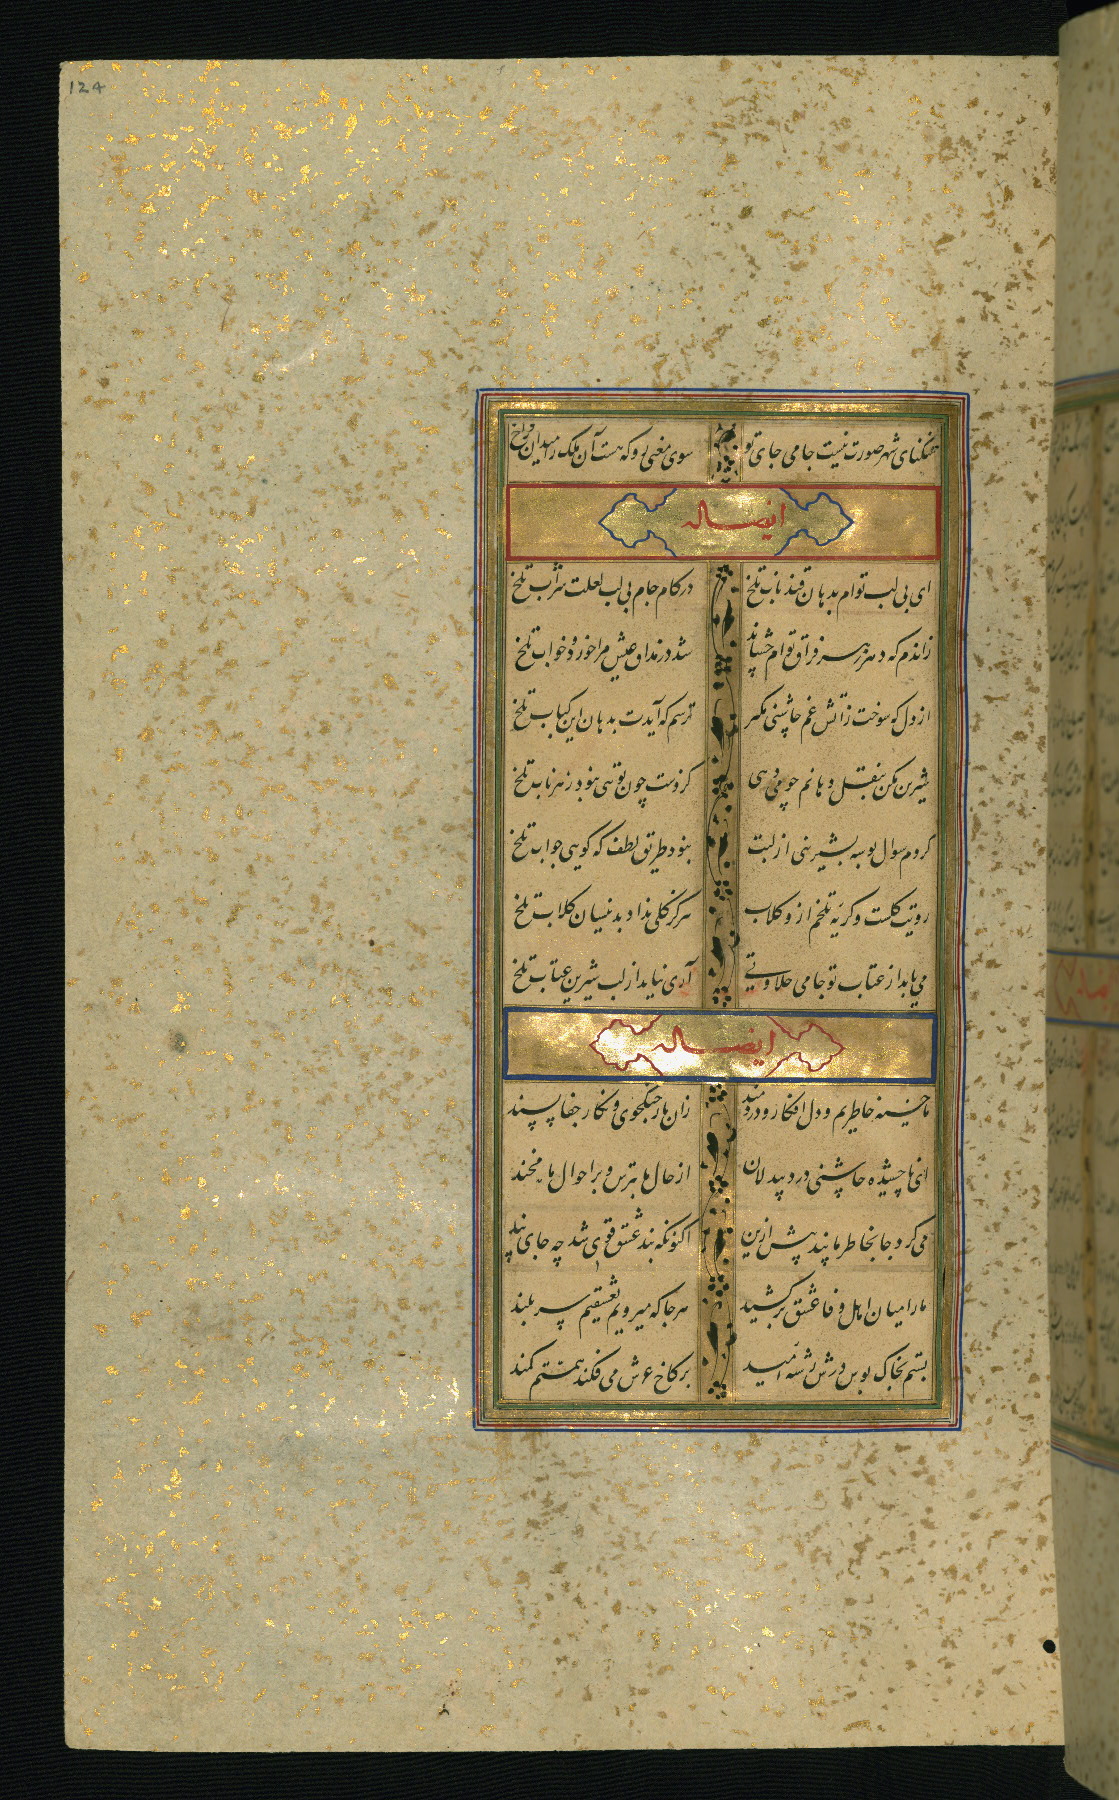 124
تنگنای شهر صورت نیست جامی جای تو سوی معنی رو که هست آن ملک را میدان فراخ
ایضا له
ای بی لب توام بدهان قند ناب تلخ در کام جام بی لب لعلت شراب تلخ
زاندم که دهر زهر فراق توام چشاند شد در مذاق عیش مرا خورد و خواب تلخ
از دل که سوخت زآتش غم چاشنی مگیر ترسم که آیدت بدهان این کباب تلخ
شیرین مکن بنقل دهانم چو می دهی کز دست چون تویی نبود زهر ناب تلخ
کردم سوال بوسه بشیرینی از لبت نبود طریق لطف که کویی جواب تلخ
رویت کلست و کریه تلخم ازو کلاب هرکز کلی نداد بدینسان کلاب تلخ
می یابد از عتاب تو جامی حلاوتی آری نیاید از لب شیرین عتاب تلخ
ایضا له
ما خسته خاطریم و دل افکار و دردمند زان یار جنکجوی و نکار جفا پسند
ای ناچشیده چاشنی درد بیدلان از حال ما بترس و بر احوال ما مخند
می کرد جا بخاطر ما پند پیش ازین اکنون که بند عشق قوی شد چه جای پند
ما را میان اهل وفا عشق برکشید هر جا که میرویم بعشقیم سر بلند
بستم بخاک بوس درش رشته امید بر کاخ عرش می فکند همتم کمند